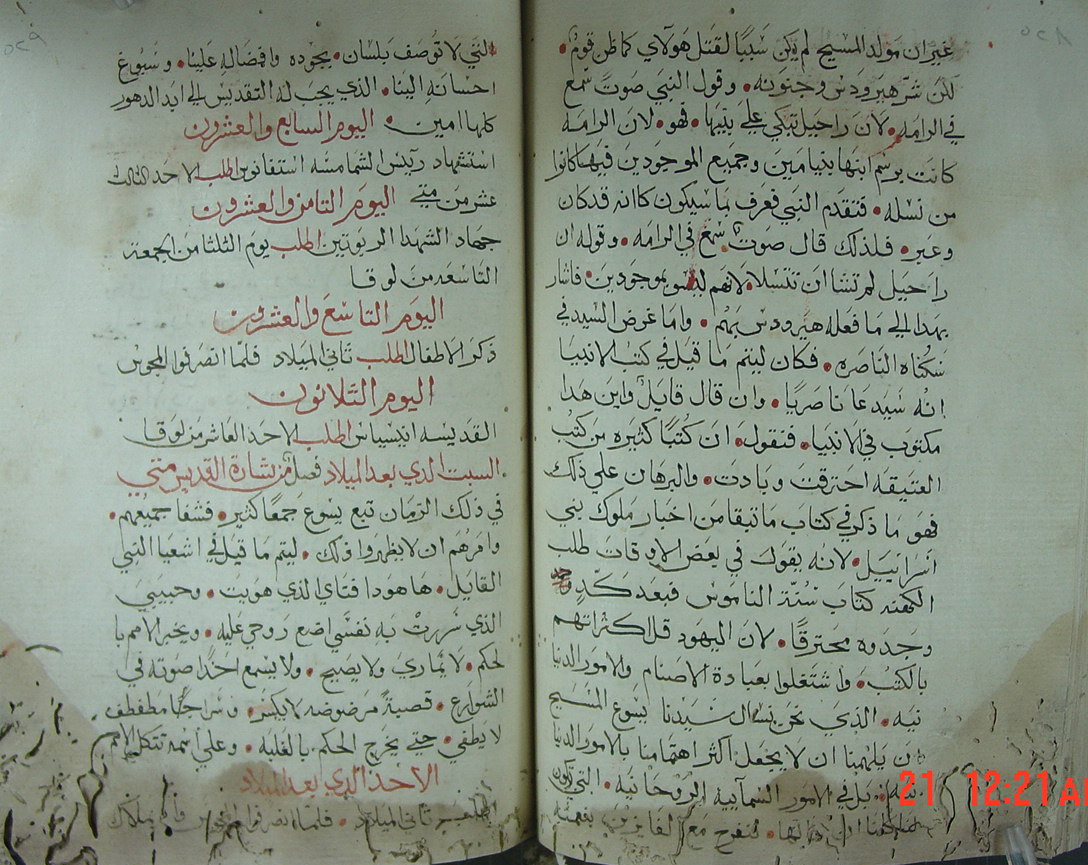 ٥٢٨
غير ان مولد المسيح لم يكن سببًا لقتل هولاي كما ظن قوم •
لكن شر هيرودس وجنونه • وقول النبي صوت سمع
في الرامه • لان راحيل تبكي علي بنيها • فهو • لان الرامه
كانت برسم ابنها بنيامين وجميع الموجودين فيها كانوا
من نسله • فتقدم النبي فعرف بما سيكون كانه قد كان
وعبر • فلذلك قال صوت سمع في الرامه • وقوله ان
راحيل لم تشا ان تتسلا لانهم ليسو بموجودين • فاشار
بهذا الي ما فعله هيرودس بهم • واما غرض السيد في
سكناه الناصره • فكان ليتم ما قيل في كتب الانبيا
انه سيدعا ناصريًا • وان قال قايل واين هذا
مكتوب في الانبيا • فنقول • ان كتبًا كثيره من كتب
العتيقه احترقت وبادت • والبرهان علي ذلك
فهو ما ذكر في كتاب ما تبقا من اخبار ملوك بني
اسراييل • لانه يقول في بعض الاوقات طلب
الكهنه كتاب سنة الناموس فبعد كد
وجدوه محترقًا • لان اليهود قل اكتراثهم
بالكتب • واشتغلوا بعبادة الاصنام والامور الدنيا
نيه • الذي نحن نسال سيدنا يسوع المسيح
ان يلهمنا ان لا يجعل اكثر اهتمامنا بالامور الدنيا
نيه • بل في الامور السمآيية الروحانيه • التي
لنفرح مع الفايزين بنعمته
٥٢٩
التي لا توصف بلسان • بجوده وافضاله علينا • وسبوغ
احسانه الينا • الذي يجب له التقديس الي ابد الدهور
كلها امين • اليوم السابع والعشرون
استشهاد رييس الشمامسه استفانوس اطلب الاحد الثالث
عشر من متي اليوم الثامن والعشرون
جهاد الشهدا الربوتين اطلب يوم الثلثا من الجمعة
التاسعه من لوقا
اليوم التاسع والعشرون
ذكر الاطفال اطلب ثاني الميلاد فلما انصرفوا المجوس
اليوم الثلاثون
القديسه انيسياس اطلب الاحد العاشر من لوقا
السبت الذي بعد الميلاد فصل من بشارة القديس متي
في ذلك الزمان تبع يسوع جمعًا كثير • فشفا جميعهم •
وامرهم ان لا يظهروا ذلك • ليتم ما قيل في اشعيا النبي
القايل • هاهودا فتاي الذي هويت • وحبيبي
الذي سررت به نفسي اضع روحي عليه • ويخبر الامم با
لحكم • لا يماري ولا يصيح • ولا يسمع احدًا صوته في
الشوارع • قصبة مرضوضه لا يكسر • وسراجًا مطفطف
لا يطفي • حتي يخرج الحكم بالغلبه • وعلي اسمه تتكل الامم
الاحد الذي بعد الميلاد
ثاني الميلاد • فلما انصرفوا المجوس
21 12:21 A